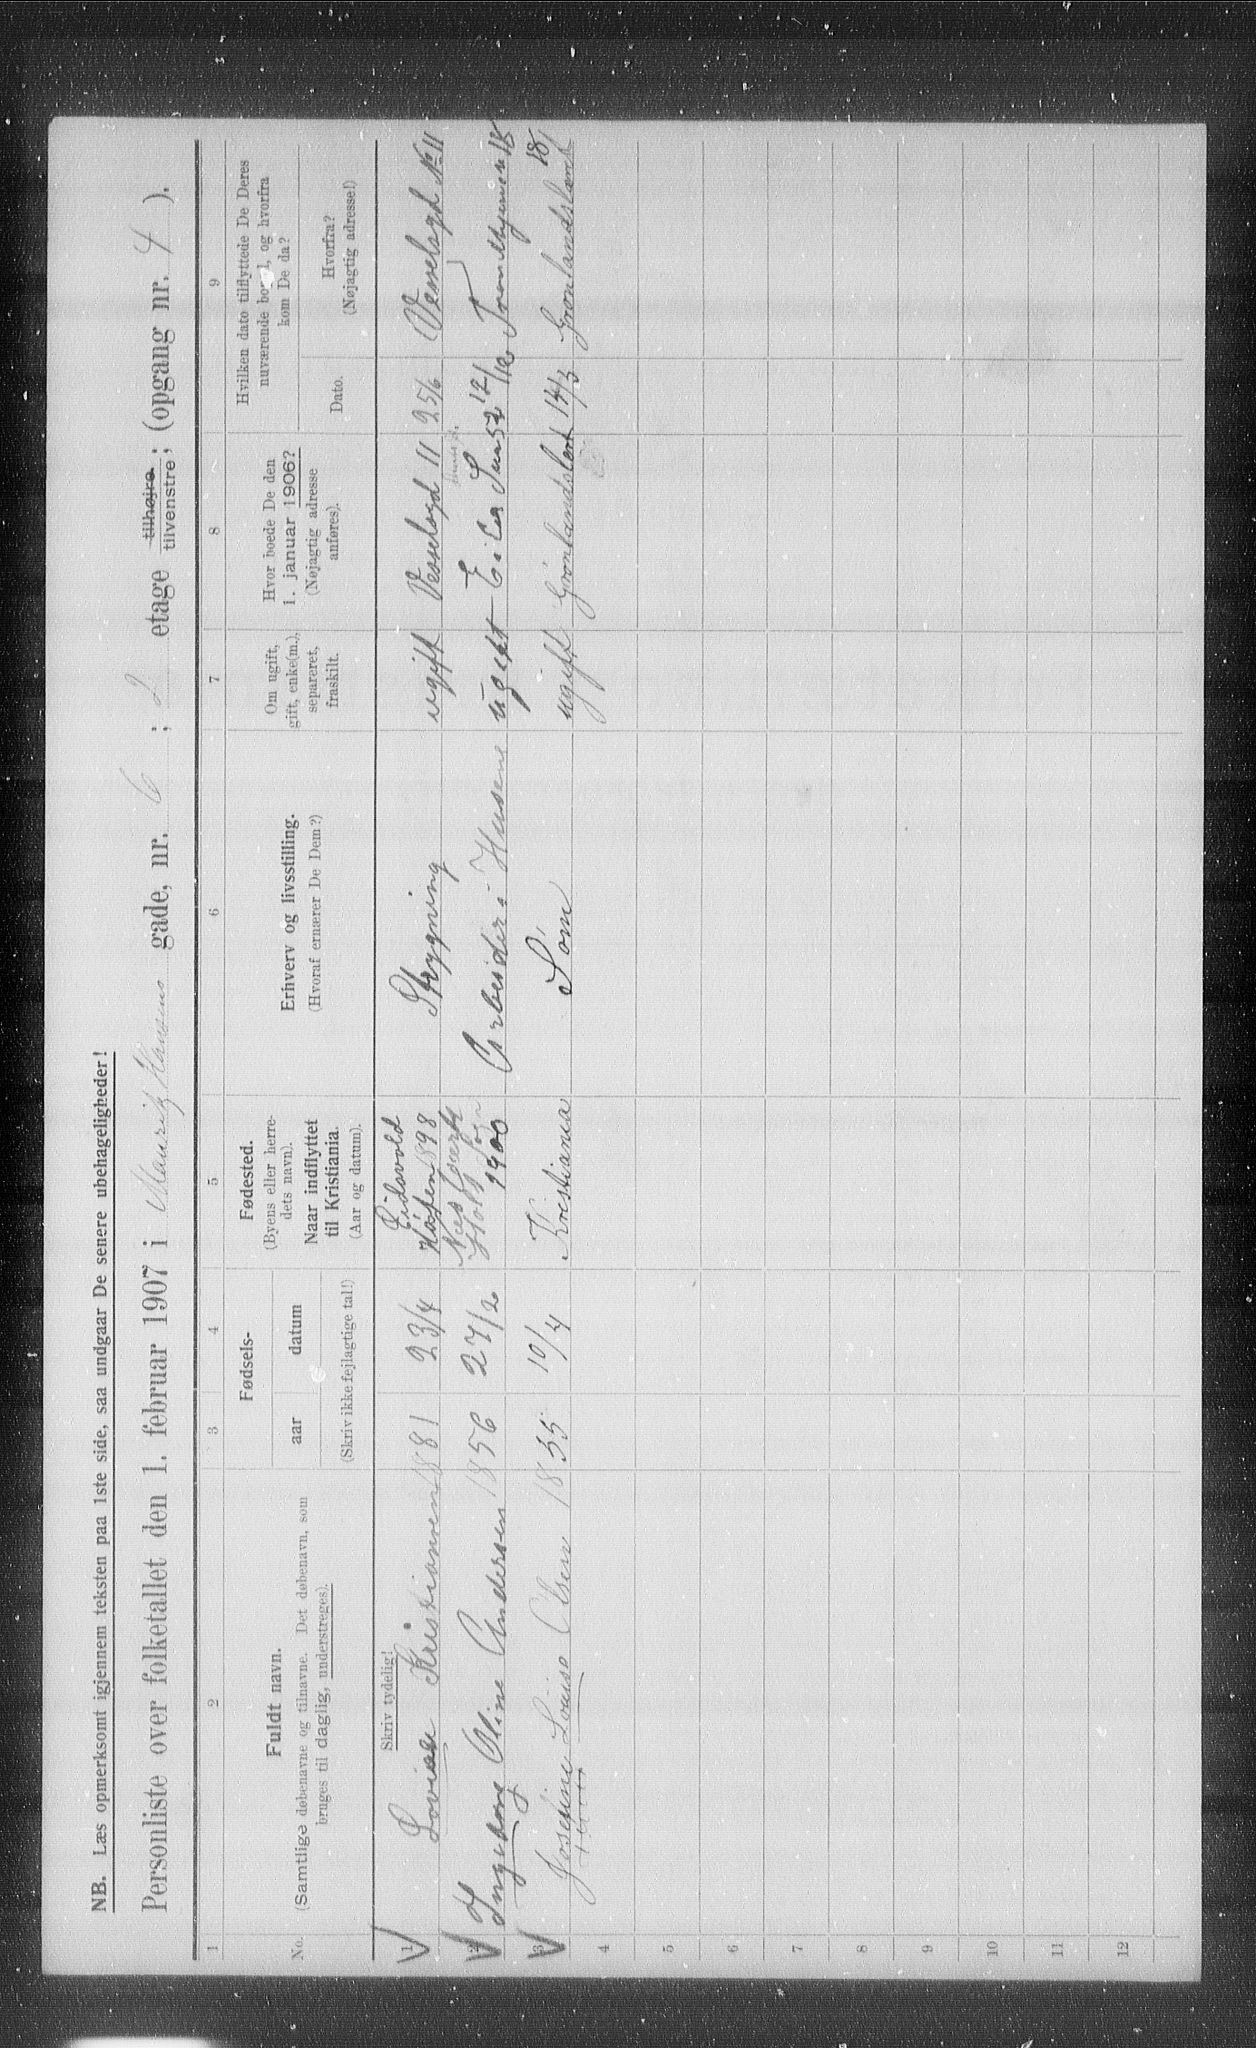 NB. Læs opmerksomt igjennem teksten paa 1ste side, saa undgaar De senere ubehageligheder!
Personliste over folketallet den 1. februar 1907 i Mauritz Hansens gade, nr. 6 ; 2 etage tilhøjre tilvenstre; (opgang nr. 4 ).
1 2 3 4 5 6 7 8 9
No.
Fuldt navn.
(Samtlige døbenavne og tilnavne. Det døbenavn, som
bruges til daglig, understreges).
Fødsels-
aar datum
(Skriv ikke fejlagtige tal!)
Fødested.
(Byens eller herre-
dets navn).
Naar indflyttet
til Kristiania.
(Aar og datum).
Erhverv og livsstilling.
(Hvoraf ernærer De Dem?)
Om ugift,
gift, enke(m.),
separeret,
fraskilt.
Hvor boede De den
1. januar 1906?
(Nøjagtig adresse
anføres).
Hvilken dato tilflyttede De Deres
nuværende bopæl, og hvorfra
kom De da?
Dato.
Hvorfra?
(Nøjagtig adresse!)
Skriv tydelig!
1 Kristiansen 1881 23/4 Eidsvold 1898 Strygning ugift Vesselsgd 11 25/6 Vesselsgd No 11
2 Ingeborg Oline Andersen 1856 27/2 Holt 1900 Arbeider i Husene ugift 12/10 18
3 Josefine Louise Olsen 1855 10/4 Kristiania Søm ugift Grönlandsleret 14/3 Grönlandsleret 18
4
5
6
7
8
9
10
11
12